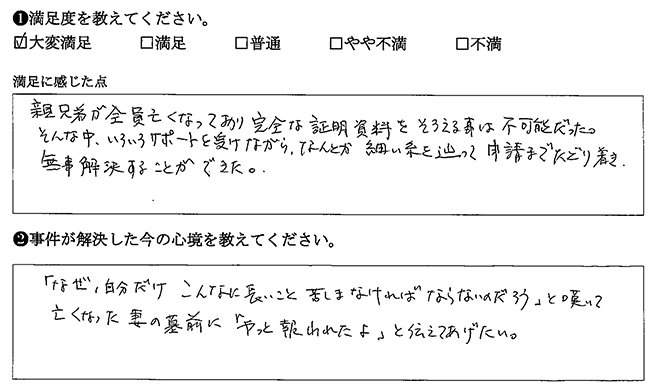 ❶満足度を教えてください。
☑大変満足 □満足 □普通 □やや不満 □不満
満足に感じた点
親兄弟が全員亡くなっており完全な証明資料をそろえる事は不可能だった。
そんな中、いろいろサポートを受けながら、なんとか細い糸を辿って申請までたどり着き、
無事解決することができた。
❷事件が解決した今の心境を教えてください。
「なぜ、自分だけこんなに長いこと苦しまなければならないのだろう」と嘆いて
亡くなった妻の墓前に「やっと報われたよ」と伝えてあげたい。